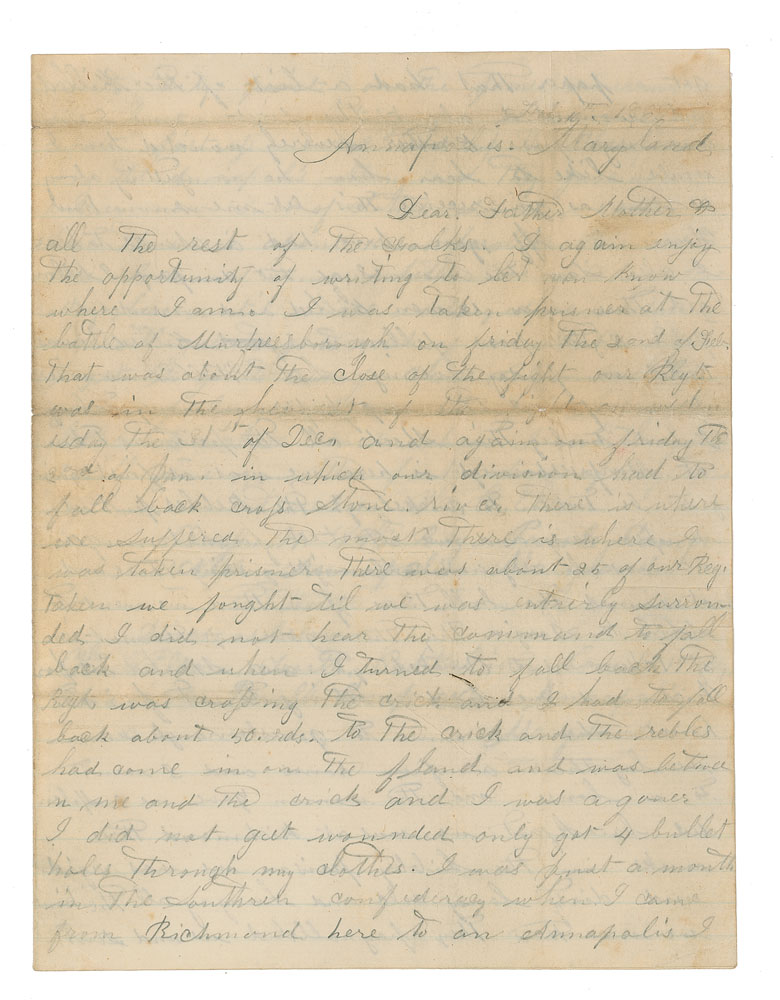 Annapolis. Maryland
Dear. Father Mother &
all the rest of the folks. I again enjoy
the opportunity of writing to let you know
where I am. I was taken prisner at the
battle of Murfreesborough on friday the 2ond of Feb.
that was about the close of the fight our Regt
was in the heviest of the fight on wedn
esday the 31st of Dec. and again on friday the
2ed. of Jan. in which our division had to
fall back cross Stone river, there is where
we suffered the most there is where I
was taken prisner there was about 25 of our Reg.
taken we fought til we was entirely surroun
ded I did not hear the command to fall
back and when I turned to fall back the
Regt was crossing the crick and I had to fall
back about 50 rds. to the crick and the rebles
had come in on the fland and was betwee
n me and the crick and I was a goner
I did not get wounded only got 4 bullet
holes through my clothes. I was just a month
in the Southren confedercy when I came
from Richmond here to an Annapolis I